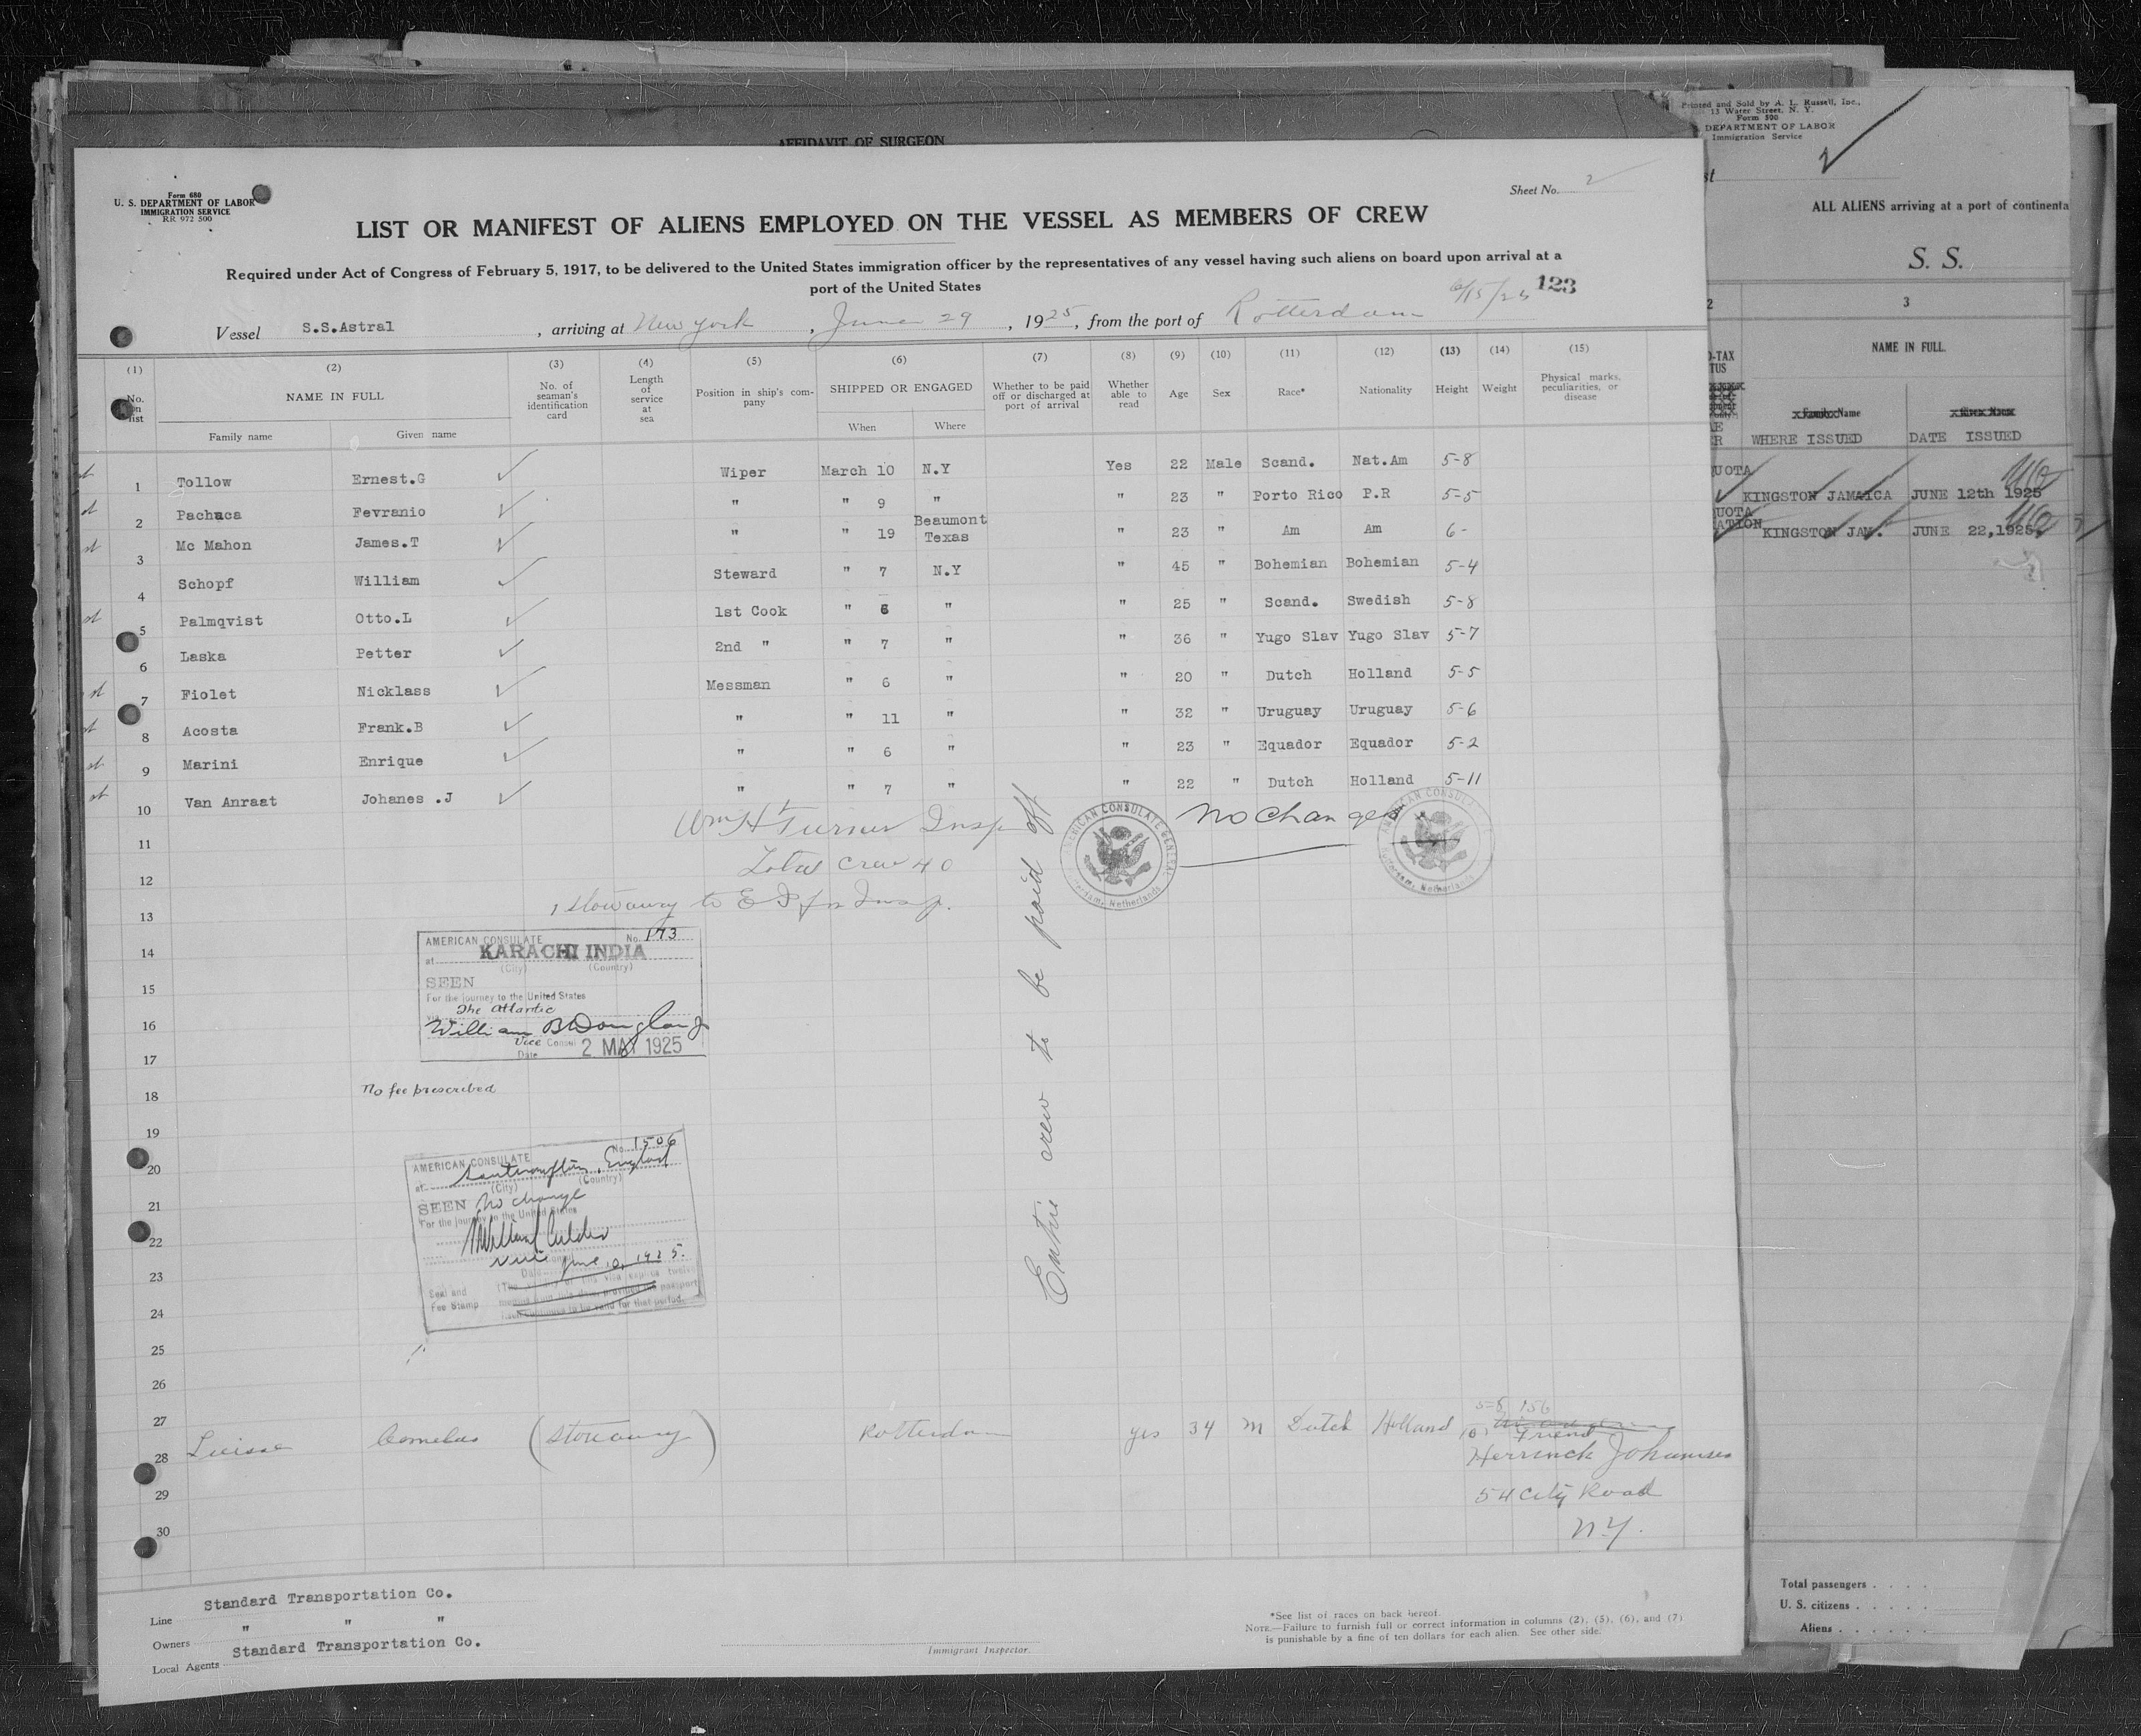 AFFIDAVIT OF SURGEON
Printed and Sold by A. L. Russell, Inc.,
15 Water Street, N. Y.
Form 500
DEPARTMENT OF LABOR
Immigration Service
ALL ALIENS arriving at a port of continenta
S. S.
Form 680
U. S. DEPARTMENT OF LABOR
IMMIGRATION SERVICE
RR 972 500
Sheet No. 2
LIST OR MANIFEST OF ALIENS EMPLOYED ON THE VESSEL AS MEMBERS OF CREW
Required under Act of Congress of February 5, 1917, to be delivered to the United States immigration officer by the representatives of any vessel having such aliens on board upon arrival at a
port of the United States
123
Vessel S.S.Astral, arriving at New York, June 29, 1925, from the port of Rotterdam
(1) (2) (3) (4) (5) (6) (7) (8) (9) (10) (11) (12) (13) (14) (15)
No. on list
NAME IN FULL
Family name Given name
No. of seaman's identification card
Length of service at sea
Position in ship's company
SHIPPED OR ENGAGED
When Where
Whether to be paid off or discharged at port of arrival
Whether able to read
Age
Sex
Race*
Nationality
Height
Weight
Physical marks, peculiarities, or disease
1 Tollow Ernest.G Wiper March 10 N.Y Yes 22 Male Scand. Nat.Am 5-8
2 Pachaca Fevranio " " 9 " " 23 " Porto Rico P.R 5-5
3 Mc Mahon James.T " " 19 Beaumont Texas " 23 " Am Am 6-
4 Schopf William Steward " 7 N.Y " 45 " Bohemian Bohemian 5-4
5 Palmqvist Otto.L 1st Cook " 6 " " 25 " Scand. Swedish 5-8
6 Laska Petter 2nd " " 7 " " 36 " Yugo Slav Yugo Slav 5-7
7 Fiolet Nicklass Messman " 6 " " 20 " Dutch Holland 5-5
8 Acosta Frank.B " " 11 " " 32 " Uruguay Uruguay 5-6
9 Marini Enrique " " 6 " " 23 " Equador Equador 5-2
10 Van Anraat Johanes .J " " 7 " " 22 " Dutch Holland 5-11
11
12
13
14
15
16
17
18
19
20
21
22
23
24
25
26
27
28
29
30
Wm H Turner Insp
Total crew 40
1 stowaway to E I for Insp.
no changes
AMERICAN CONSULATE GENERAL
Rotterdam, Netherlands
Entire crew to be paid off
AMERICAN CONSULATE No. 173
at KARACHI INDIA
(City) (Country)
SEEN
For the journey to the United States
via The Atlantic
William B Douglas Jr
Vice Consul
Date 2 MAY 1925
No fee prescribed
AMERICAN CONSULATE No. 1506
at Southampton, England
(City) (Country)
SEEN No change
For the journey to the United States
Vice Consul
Date June 1925.
Seal and
Fee Stamp
Cornelus (Stowaway) Rotterdam yes 34 M Dutch Holland
5-8 156
Friend
Herrinck Johannsen
54 City Road
N.Y.
Line Standard Transportation Co.
Owners " " "
Local Agents Standard Transportation Co.
Immigrant Inspector.
*See list of races on back hereof.
NOTE.—Failure to furnish full or correct information in columns (2), (5), (6), and (7)
is punishable by a fine of ten dollars for each alien. See other side.
3
NAME IN FULL.
Family Name
WHERE ISSUED DATE ISSUED
KINGSTON JAMAICA JUNE 12th 1925
KINGSTON JAM. JUNE 22,1925.
Total passengers . . . .
U. S. citizens . . . . .
Aliens . . . . . .